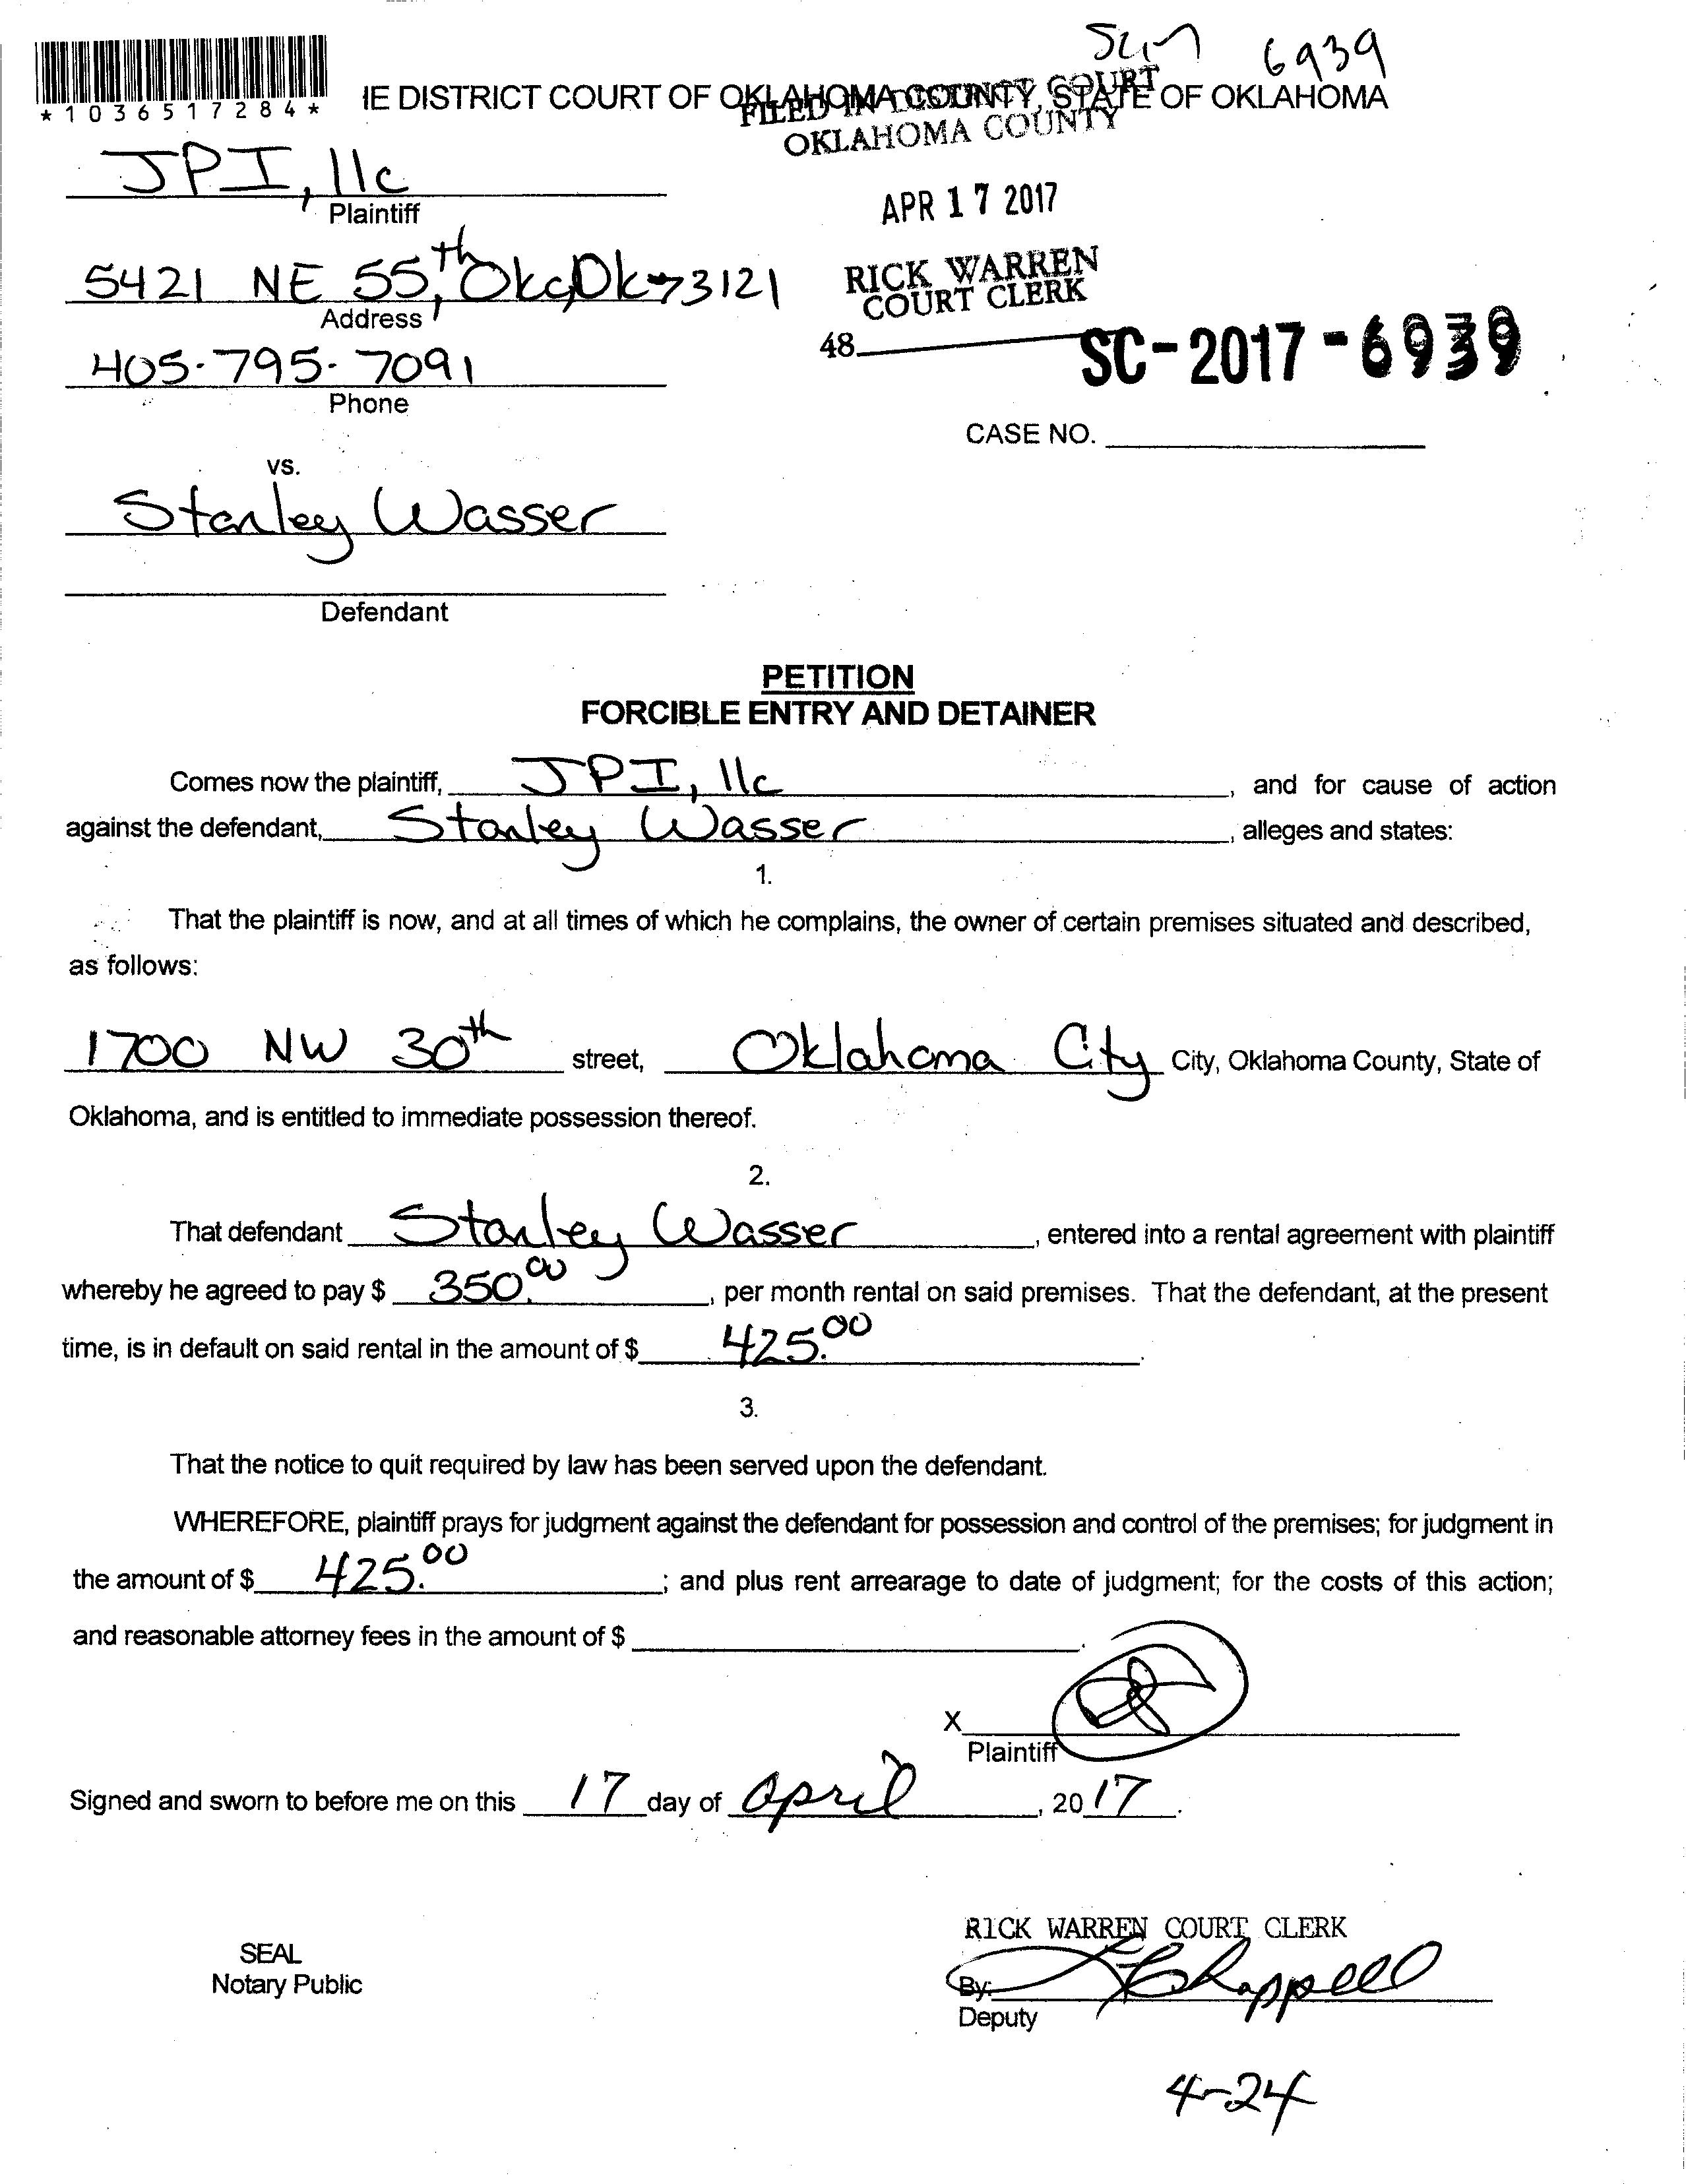 6939
*1036517284*
IE DISTRICT COURT OF OKLAHOMA COUNTY, STATE OF OKLAHOMA
FILED IN DISTRICT COURT
OKLAHOMA COUNTY
JPI, llc
Plaintiff
APR 17 2017
5421 NE 55th, Okc, Ok 73121
Address
RICK WARREN
COURT CLERK
405-795-7091
Phone
48
SC-2017-6939
CASE NO.
vs.
Stanley Wasser
Defendant
PETITION
FORCIBLE ENTRY AND DETAINER
Comes now the plaintiff, JPI, llc, and for cause of action
against the defendant, Stanley Wasser, alleges and states:
1.
That the plaintiff is now, and at all times of which he complains, the owner of certain premises situated and described,
as follows:
1700 NW 30th street, Oklahoma City City, Oklahoma County, State of
Oklahoma, and is entitled to immediate possession thereof.
2.
That defendant Stanley Wasser, entered into a rental agreement with plaintiff
whereby he agreed to pay $ 350.00, per month rental on said premises. That the defendant, at the present
time, is in default on said rental in the amount of $ 425.00.
3.
That the notice to quit required by law has been served upon the defendant.
WHEREFORE, plaintiff prays for judgment against the defendant for possession and control of the premises; for judgment in
the amount of $ 425.00; and plus rent arrearage to date of judgment; for the costs of this action;
and reasonable attorney fees in the amount of $ .
X
Plaintiff
Signed and sworn to before me on this 17 day of April, 2017.
RICK WARREN COURT CLERK
SEAL
Notary Public
By: Chappell
Deputy
4-24